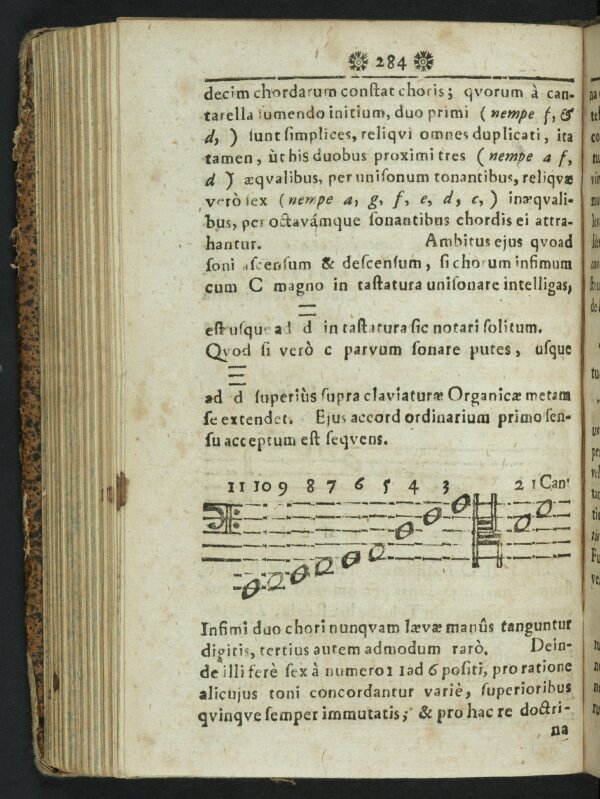 284
decim chordarum conſtat choris; qvorum à can-
tarella ſumendo initium, duo primi ( nempe f, &
d, ) ſunt ſimplices, reliqvi omnes duplicati, ita
tamen, ùt his duobus proximi tres ( nempe a f,
d ) æqvalibus, per uniſonum tonantibus, reliqvæ
verò ſex ( nempe a, g, f, e, d, c, ) inæqvali-
bus, per octavámque ſonantibus chordis ei attra-
hantur. Ambitus ejus qvoad
ſoni aſcenſum & deſcenſum, ſi chorum infimum
cum C magno in taſtatura uniſonare intelligas,
eſt usque ad d in taſtatura ſic notari ſolitum.
Qvod ſi verò c parvum ſonare putes, uſque
ad d ſuperiùs ſupra claviaturæ Organicæ metam
ſe extendet. Ejus accord ordinarium primo ſen-
ſu acceptum eſt ſeqvens.
11 10 9 8 7 6 5 4 3 2 1 Can.
Infimi duo chori nunqvam lævæ manûs tanguntur
digitis, tertius autem admodum rarò. Dein-
de illi ferè ſex à numero 11 ad 6 poſiti, pro ratione
alicujus toni concordantur variè, ſuperioribus
qvinqve ſemper immutatis; & pro hac re doctri-
na